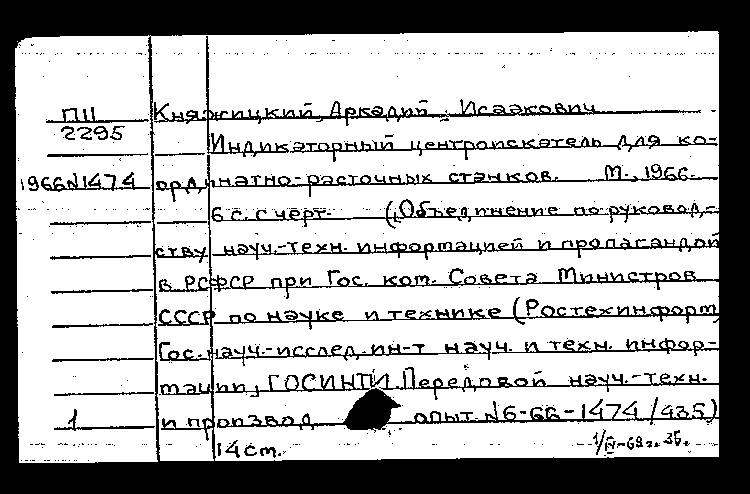 ПII Княжицкий, Аркадий Исаакович
2295
Индикаторный центроискатель для ко-
1966N1474 ординатно-расточных станков. М., 1966.
6 с. с черт. (Объединение по руковод-
ству науч.-техн. информацией и пропагандой
в РСФСР при Гос. ком. Совета Министров
СССР по науке и технике (Ростехинформ)
Гос. науч.-исслед. ин-т науч. и техн. инфор-
мации, ГОСИНТИ. Передовой науч.-техн.
1 и производ. опыт N6-66-1474/435)
14 см.